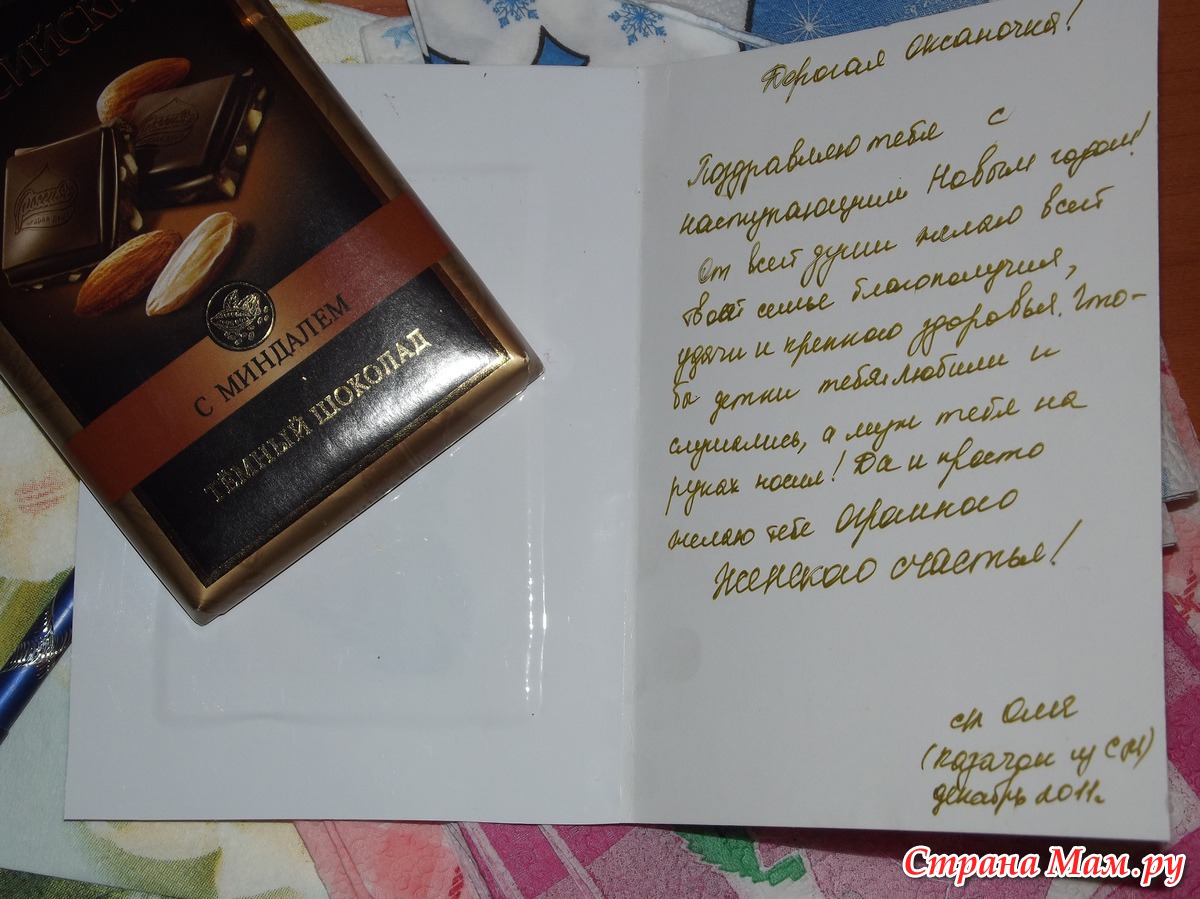 ИЙСКИ
С МИНДАЛЕМ
ТЁМНЫЙ ШОКОЛАД
Дорогая Оксаночка!
Поздравляю тебя с
наступающим Новым годом!
От всей души желаю всей
твоей семье благополучия,
удачи и крепкого здоровья. Что-
бы детки тебя любили и
слушались, а муж тебя на
руках носил! Да и просто
желаю тебе огромного
женского счастья!
Оля
декабрь 2011г.
Страна Мам.ру